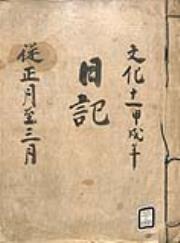 文化十一甲戌年
日記
従正月至三月